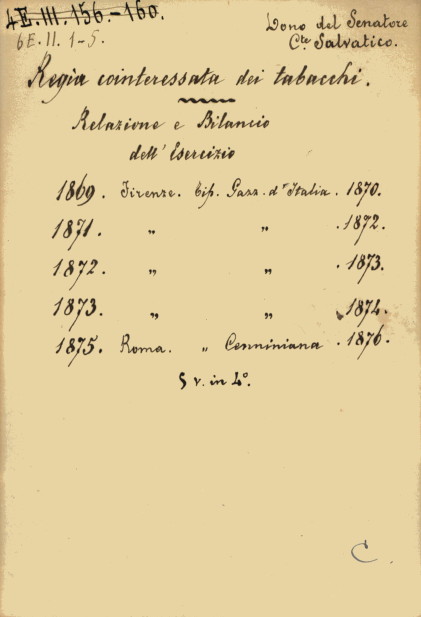 4E.III.156.-160.
6E.II.1-5.
Dono del Senatore
Cte Salvatico.
Regia cointeressata dei tabacchi.
Relazione e Bilancio
dell'Esercizio
1869. Firenze. Tip. Gazz. d'Italia. 1870.
1871. „ „ .1872.
1872. „ „ .1873.
1873. „ „ .1874.
1875. Roma. „ Cenniniana .1876.
5 v. in 4°.
C.